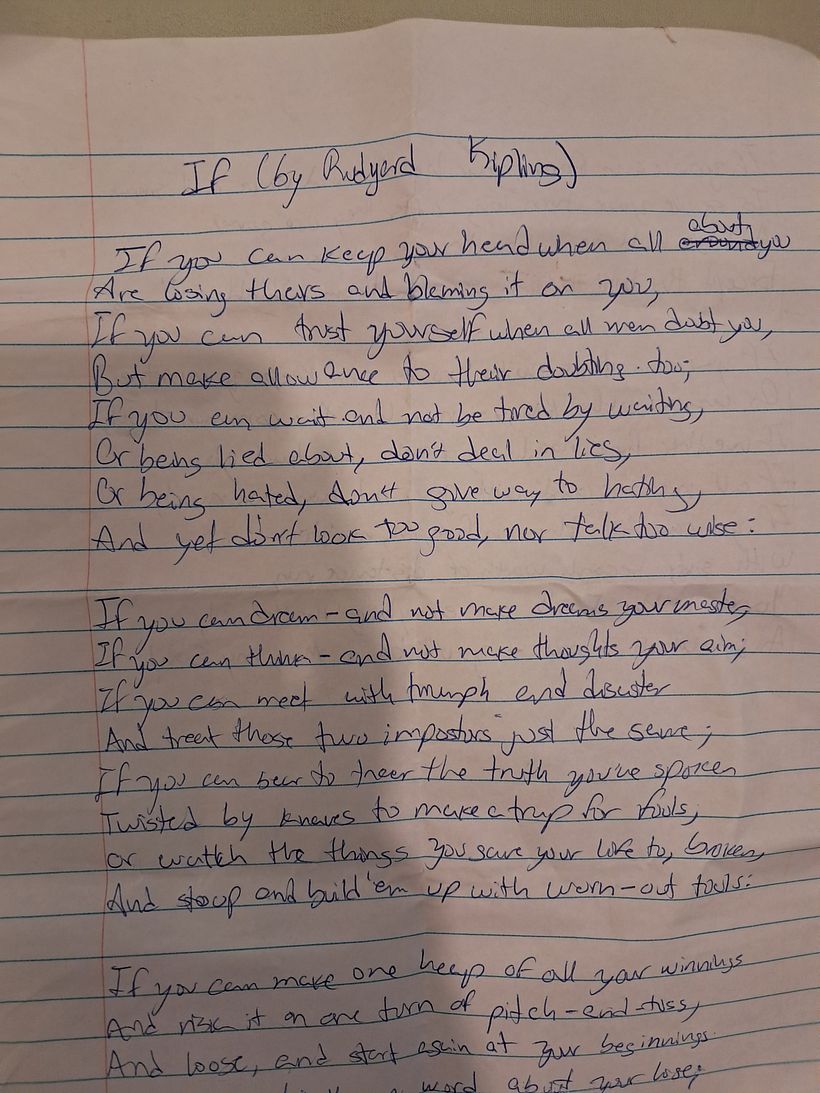 If (by Rudyard Kipling)
If you can keep your head when all about you
Are losing theirs and blaming it on you,
If you can trust yourself when all men doubt you,
But make allowance to their doubting too;
If you can wait and not be tired by waiting,
Or being lied about, don't deal in lies,
Or being hated, don't give way to hating,
And yet don't look too good, nor talk too wise:
If you can dream - and not make dreams your master,
If you can think - and not make thoughts your aim;
If you can meet with triumph and disaster
And treat those two impostors just the same;
If you can bear to hear the truth you've spoken
Twisted by knaves to make a trap for fools,
or watch the things you gave your life to, broken,
And stoop and build 'em up with worn-out tools:
If you can make one heap of all your winnings
And risk it on one turn of pitch-and-toss,
And loose, and start again at your beginnings
a word about your lose;